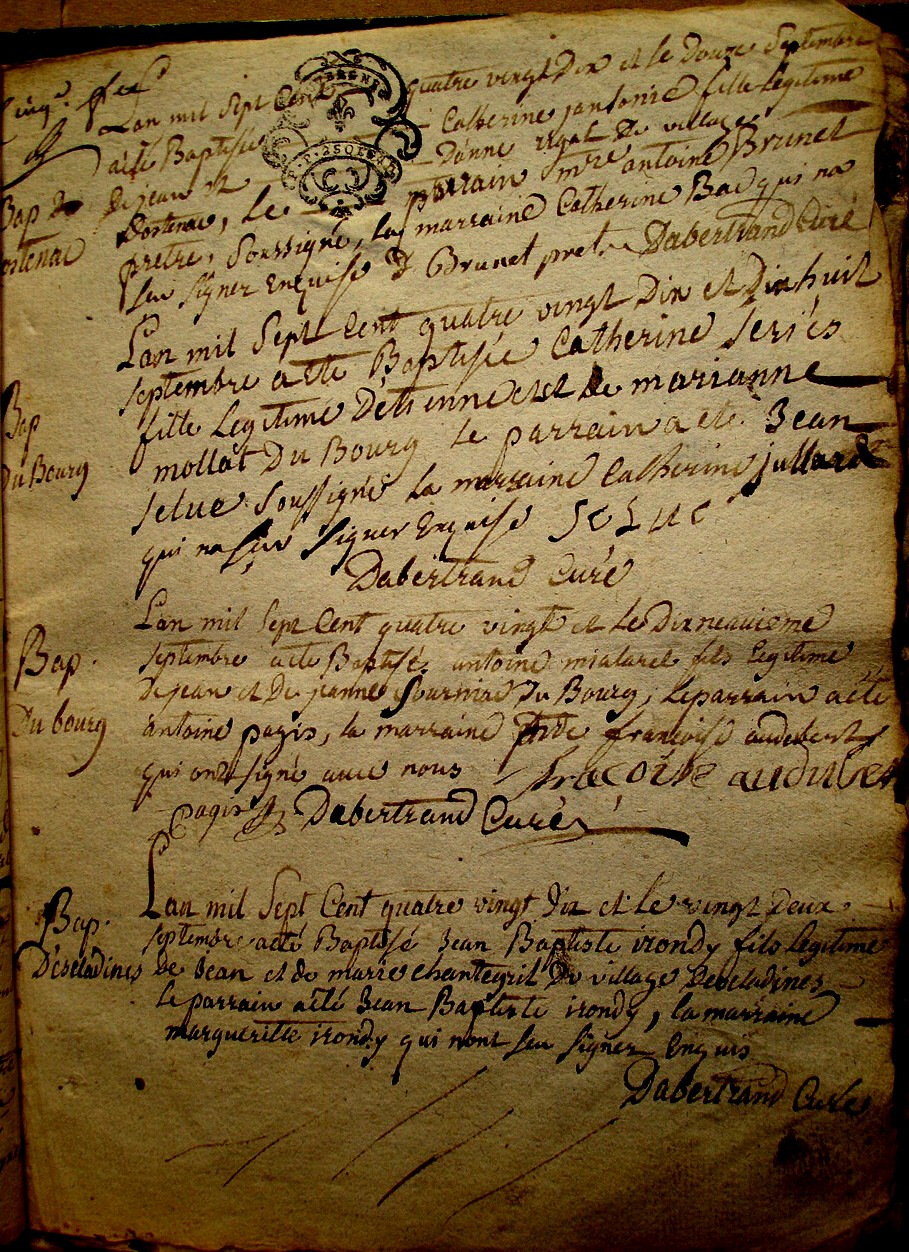 Lan mil Sept Cent quatre vingt Dix et le Douze Septembre
acté Baptisée Catherine jantonie fille Legitime
De jean et Danne rigal De village
Dostenac, Le parrain mre antoine Brunet
pretre, Soussigné, la marraine Catherine Bac qui na
seu signer Enquise Brunet pret. Dabertrand Curé
Bap De
ostenac
Lan mil Sept Cent quatre vingt Dix et Dix huit
septembre acté Baptisée Catherine Seriés
fille Legitime Détienne et De marianne
mollat Du Bourg Le parrain a eté Jean
Seluc Soussigné La marraine Catherine jullard
qui na seu signer Enquise Seluc
Dabertrand Curé
Bap
Du Bourg
Lan mil Sept Cent quatre vingt et Le Dixneuvieme
septembre acté Baptisé antoine mialaret fils Legitime
De jean et De jeanne Du Bourg, Le parrain acté
antoine pagis, La marraine françoise audebert
qui ont signé avec nous
pagis Dabertrand Curé
Bap.
Du bourg
Lan mil Sept Cent quatre vingt Dix et Le vingt Deux
septembre acté Baptisé Jean Baptiste irondy fils Legitime
De Jean et De marie Chantegril De village Deseladines
Le parrain acté Jean Baptiste irondy, La marraine
marguerite irondy qui nont seu signer Enquis
Dabertrand Curé
Bap.
Deseladines